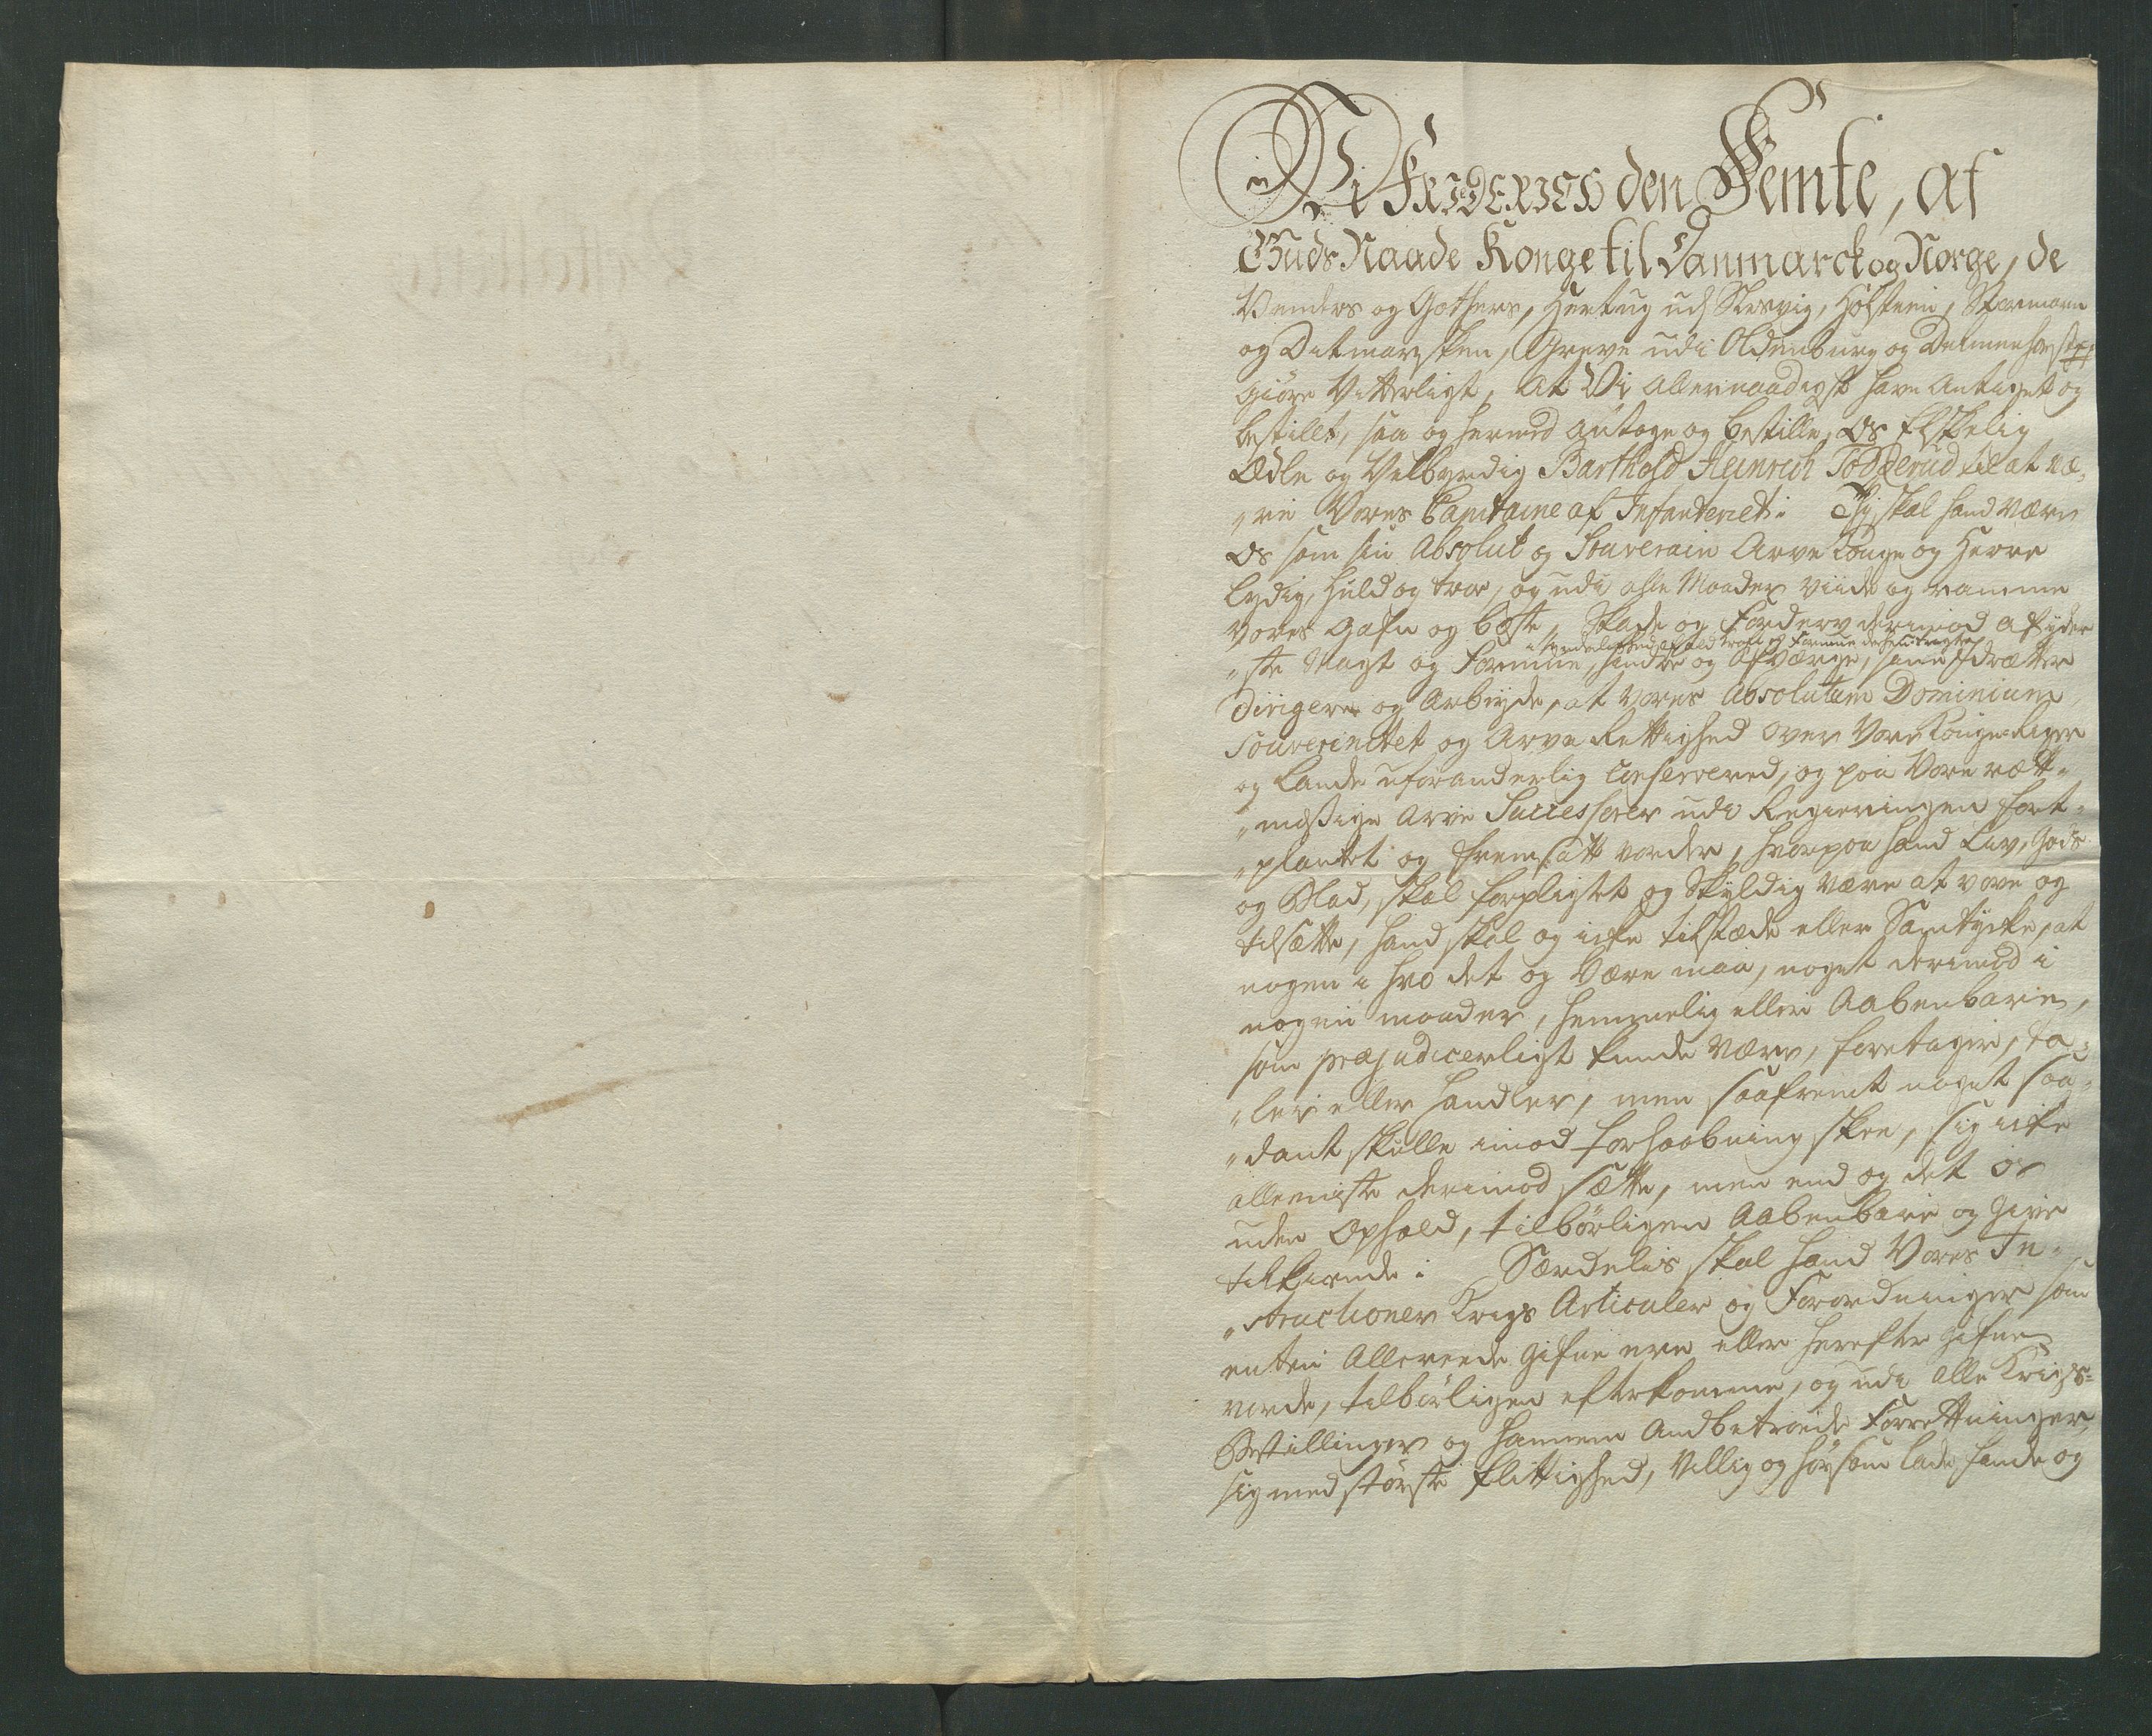 Vi FRIDERICH den Femte, af
Guds Naade Konge til Danmarck og Norge, de
Venders og Gothers, Hertug udi Slesvig, Holsteen, Stormarn
og Ditmarsken, Greve udi Oldenburg og Delmenhorst
Giøre Vitterligt, At Vi Allernaadigst have Antaget og
bestillt, saa og hermed Antage og bestille, Os Elskelig
Ædle og Velbyrdig Barthold Heinrich Tødderud til at væ,,
,,re Vores Capitaine af Infanteriet: Thj skal hand være
Os som sin Absolut og Souverain Arve Konge og Herre
Lydig, Huld og troe, og udi alle Maader viide og ramme
Vores Gafn og beste, Skade og Forderv derimod af yder
i særdeleshed af ald troe og Formue derhen
,,ste Magt og Formue, hindre og Afværge, sine Idrætter
dirigere og Arbeyde, at vores Absolutum Dominium
Souverinitet og Arve Rettighed over Vore Konge-Riger
og Lande uforanderlig Conserveres, og paa Vore rett,,
,,mæssige Arve Successorer udi Regieringen fort,,
,,plantet og fremsatt vorder, hvorpaa hand Liv, Gods
og Blod, skal forpligtet og Skyldig være at vove og
tilsætte, hand skal og icke tilstæde eller Samtycke, at
nogen i hvo det og Være maa, noget derimod i
nogen maader, hemmelig eller Aabenbare,
som præjudicerligt kunde være, foretager, ta,,
,,ler eller handler, men saafremt noget saa,,
,,dant skulle imod forhaabning skee, sig icke
alleniste derimod sætte, men end og det Os
uden Ophold, tilbørligen Aabenbare og Give
tilkiende: Særdelis skal hand Vores In,,
,,structioner Krigs Articuler og Forordninger som
enten Allereede Gifne ere eller herefter Gifne
vorde, tilbørligen efterkomme, og udi Alle Krigs-
Bestillinger og hannem Andbetroede Forrettninger
sig med største flittighed, Villig og hørsom lade finde og